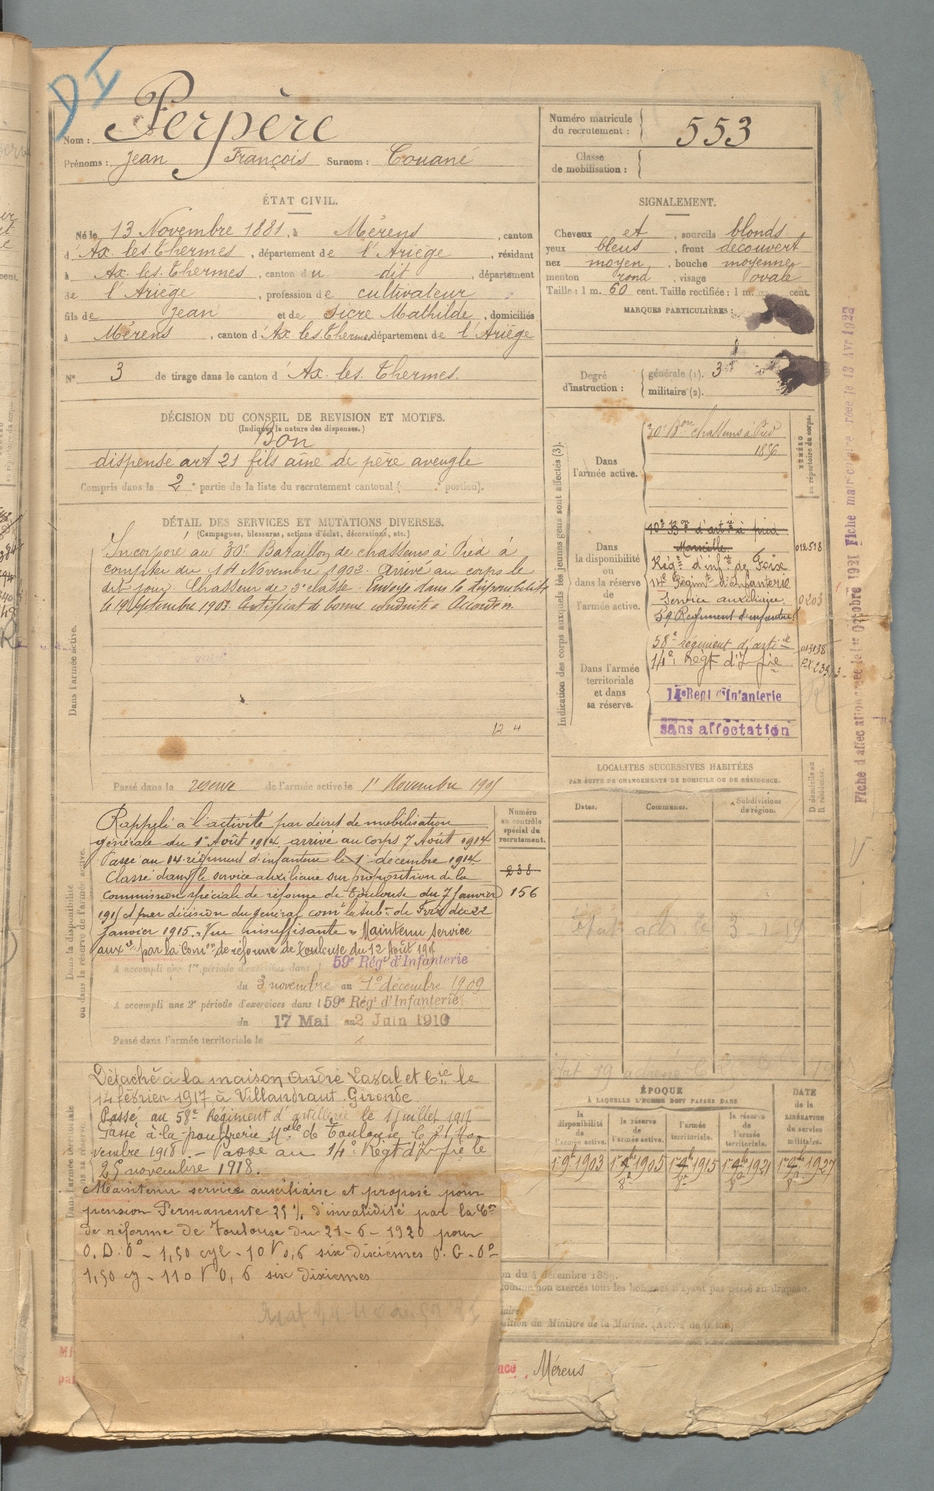 DI
Nom : Perpère
Prénoms : Jean François Surnom : Couané
Numéro matricule du recrutement : 553
Classe de mobilisation :
ÉTAT CIVIL.
Né le 13 Novembre 1881, à Mérens, canton
d'Ax. les. Thermes, département de l'Ariège, résidant
à Ax. les. Thermes, canton du dit, département
de l'Ariège, profession de cultivateur
fils de Jean et de Sicre Mathilde, domiciliés
à Mérens, canton d'Ax les Thermes, département de l'Ariège
N° 3 de tirage dans le canton d'Ax. les. Thermes.
SIGNALEMENT.
Cheveux et sourcils blonds
yeux bleus, front découvert
nez moyen, bouche moyenne
menton rond, visage ovale
Taille : 1 m. 60 cent. Taille rectifiée : 1 m. cent.
MARQUES PARTICULIÈRES :
Degré d'instruction : générale (1). 3
militaire (2).
DÉCISION DU CONSEIL DE REVISION ET MOTIFS.
(Indiquer la nature des dispenses.)
Bon
dispense art 21 fils aîné de père aveugle
Compris dans la 2e partie de la liste du recrutement cantonal ( portion).
DÉTAIL DES SERVICES ET MUTATIONS DIVERSES.
(Campagnes, blessures, actions d'éclat, décorations, etc.)
Dans l'armée active.
Incorporé au 30e Bataillon de chasseurs à Pied à
compter du 14 Novembre 1902. Arrivé au corps le
dit jour. Chasseur de 2e classe. Envoyé dans la disponibilité
le 19 Septembre 1903. Certificat de bonne conduite Accordé.
12 4
Passé dans la réserve de l'armée active le 1er Novembre 1905
Indication des corps auxquels les jeunes gens sont affectés (3).
NUMÉRO au répertoire du corps.
Dans l'armée active.
30e Bon chasseurs à Pied
1896
Dans la disponibilité ou dans la réserve de l'armée active.
10e Bon d'artie à pied
Marseille
Régt d'infie de Foix
14e Régimt d'infanterie
Service auxiliaire
59 Régiment d'infanterie
012518
0203
Dans l'armée territoriale et dans sa réserve.
58e régiment d'artie
14e Régt d'Infie
14e Regt d'Infanterie
sans affectation
Fiche d'affectation créée le 1er Octobre 1921 Fiche matricule créée le 13 Avr 1922
LOCALITÉS SUCCESSIVES HABITÉES
PAR SUITE DE CHANGEMENTS DE DOMICILE OU DE RÉSIDENCE.
Dates. Communes. Subdivisions de région. D domicile ou R résidence.
Dans la disponibilité ou dans la réserve de l'armée active.
Numéro au contrôle spécial du recrutement.
238
156
Rappelé à l'activité par décret de mobilisation
générale du 1er Août 1914 arrivé au corps 7 Août 1914
Passé au 14e régiment d'infanterie le 1er décembre 1914
Classé dans le service auxiliaire sur proposition de la
Commission spéciale de réforme de Toulouse du 7 Janvier
1915 et par décision du général comt la Subon de Foix du 22
Janvier 1915. Vue insuffisante. Maintenu service
auxre par la Comon de réforme de Toulouse du 12 Août
A accompli une 1re période d'exercices dans l 59e Régt d'Infanterie
du 3 novembre au 1er décembre 1909
A accompli une 2e période d'exercices dans l 59e Régt d'Infanterie
du 17 Mai au 2 Juin 1910
Passé dans l'armée territoriale le
Détaché à la maison André Lasal et Cie le
14 février 1917 à Villandraut Gironde
Passé au 58e Régiment d'artillerie le 1 juillet 1917
Passé à la poudrerie Nale de Toulouse le 21 No
vembre 1918. – Passé au 14e Régt d'Infie le
25 novembre 1918.
Maintenu service auxiliaire et proposé pour
pension Permanente 25% d'invalidité par la Con
de réforme de Toulouse du 21-6-1920 pour
O. D. 0° - 1,50 cyl - 10 V 0,6 six dixièmes O. G. 0°
1,50 cy - 110 V 0,6 six dixièmes
ÉPOQUE
À LAQUELLE L'HOMME DOIT PASSER DANS
la disponibilité de l'armée active. la réserve de l'armée active. l'armée territoriale. la réserve de l'armée territoriale.
DATE de la LIBÉRATION du service militaire.
1903 1905 1915 1921 1927
Mérens